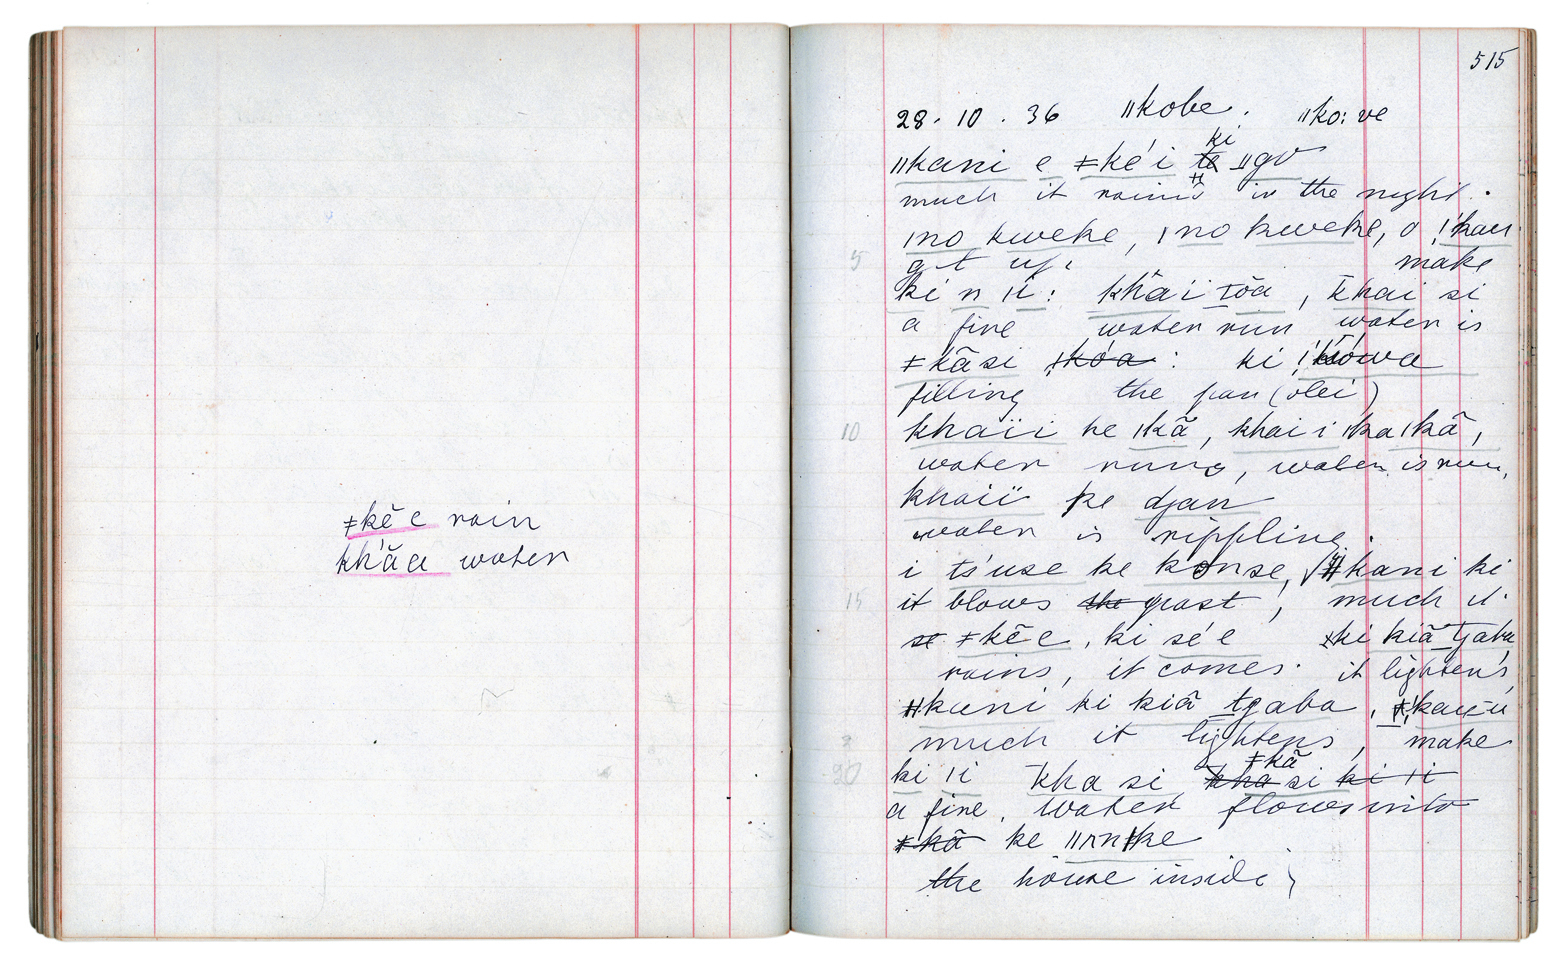 ǂkē e rain
kh'ãa water
515
28. 10. 36 ǁkobe. ǁko: ve
ǁkani e ǂke'i ki ǁgv
much it rains in the night.
ǀno kweke, ǀno kweke, o ǃkau
get up! make
ki n ǀi: kh'ãi toa, khai si
a fine water run water is
ǂkãsi ǃkoa: ki
filling the pan (vlei)
khaïi ke ǀkã, khai i ǀkaǀkã,
water runs, water is run,
khaiï ke djan
water is rippling.
i ts'use ke konse, ǁkani ki
it blows the past, much it
se ǂkē e, ki se'e ki kiã tjaba
rains, it comes. it lightens,
ǁkani ki kiã tgaba,
much it lightens, make
ǂkã
ki ǀi kha si kha si ki ǀi
a fine. water flows into
ǂkã ke
the house inside;
5
10
15
20